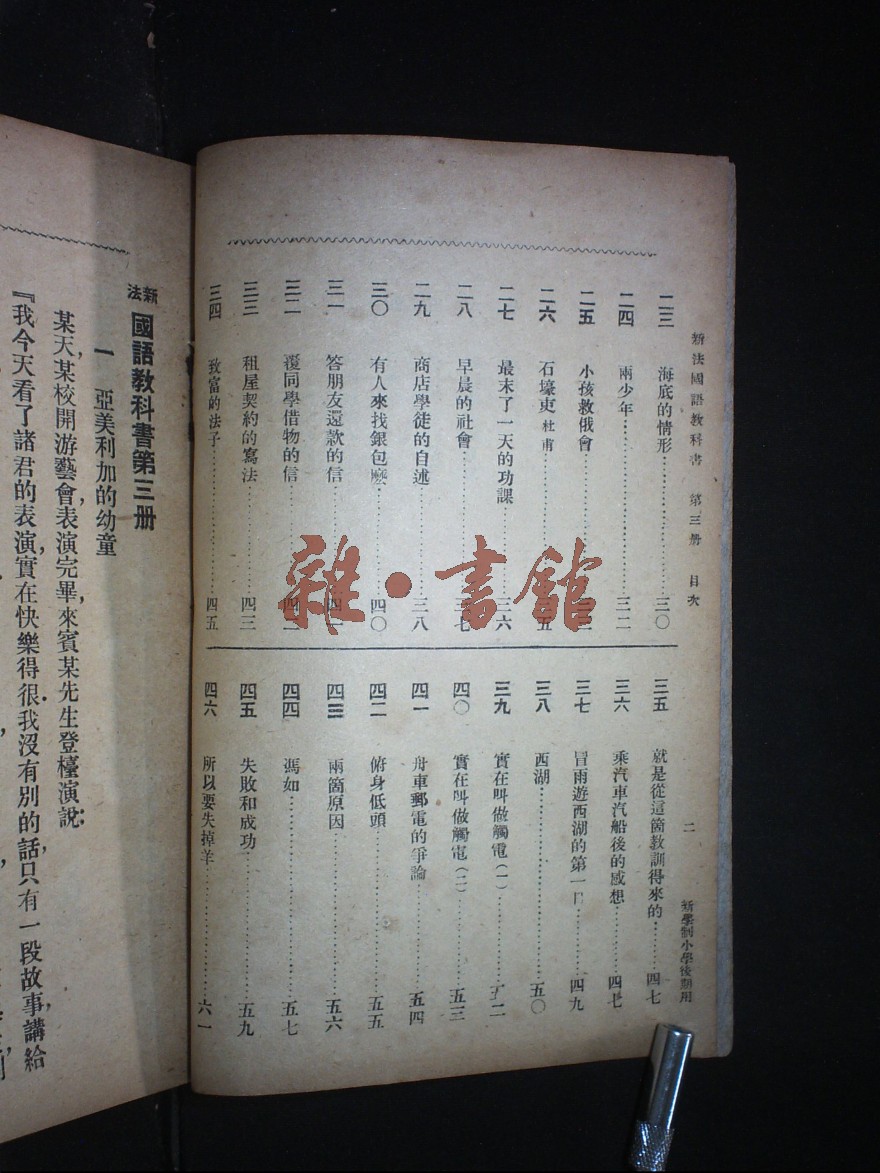 新法國語教科書 第三册 目次 二 新學制小學後期用
二三 海底的情形 三〇
二四 兩少年 三二
二五 小孩救俄會
二六 石壕吏 杜甫 五
二七 最末了一天的功課 三六
二八 早晨的社會 三七
二九 商店學徒的自述 三八
三〇 有人來找銀包麽 四〇
三一 答朋友還款的信 四一
三二 覆同學借物的信 四二
三三 租屋契約的寫法 四三
三四 致富的法子 四五
三五 就是從這箇教訓得來的 四七
三六 乘汽車汽船後的感想 四七
三七 冒雨遊西湖的第一日 四九
三八 西湖 五〇
三九 實在叫做觸電(一) 五二
四〇 實在叫做觸電(二) 五三
四一 舟車郵電的爭論 五四
四二 俯身低頭 五五
四三 兩箇原因 五六
四四 馮如 五七
四五 失敗和成功 五九
四六 所以要失掉羊 六一
雜·書館
新法 國語教科書第三册
一 亞美利加的幼童
某天某校開游藝會表演完畢,來賓某先生登檯演說:
『我今天看了諸君的表演,實在快樂得很.我沒有別的話,只有一段故事,講給